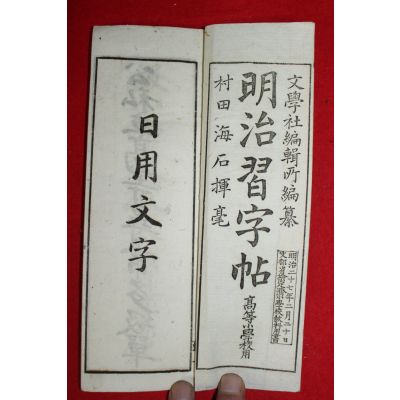 文學社編輯所編纂
明治習字帖
高等小學校用
村田海石揮毫
明治二十七年二月二十日
日用文字